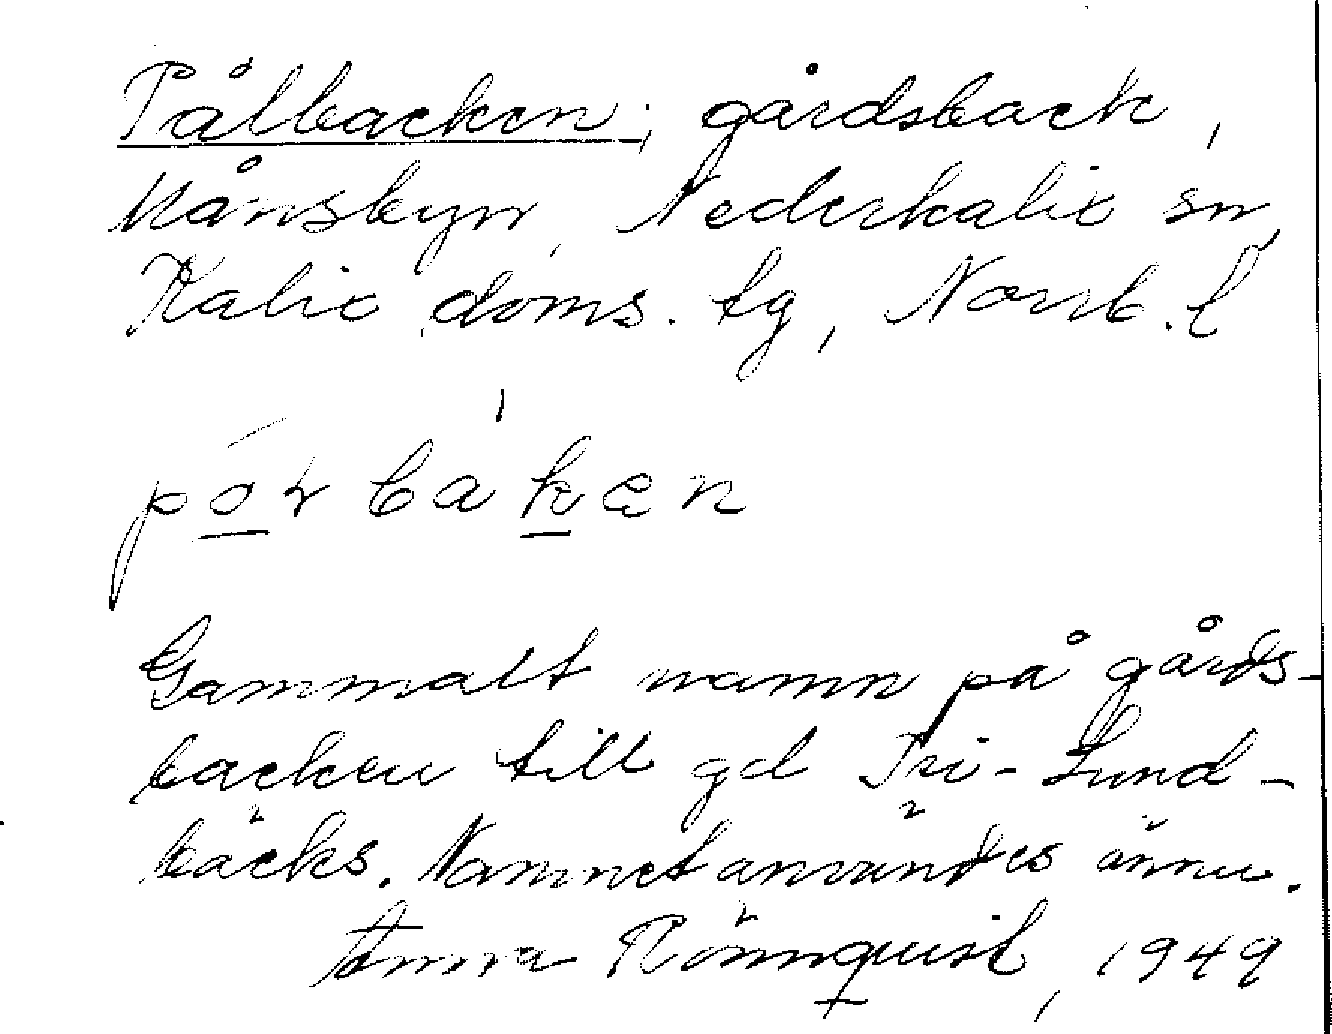 Pålbacken, gårdsback,
Månsbyn, Nederkalix sn,
Kalix doms. tg, Norrb. l
Gammalt namn på gårds-
backen till gd Pri-Lund-
bäcks. Namnet användes ännu.
Anna Rönnquist, 1949